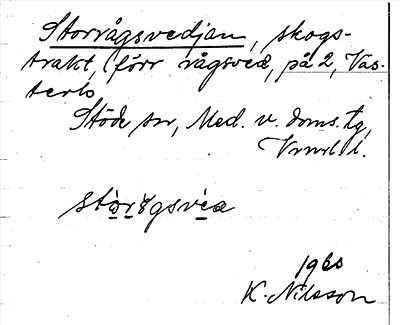 Storrågsvedjan, skogs-
trakt, (förr rågsved, på 2, Väs-
terlo
Stöde sn, Med. v. doms. tg,
Vrnrl l.
1960
K. Nilsson